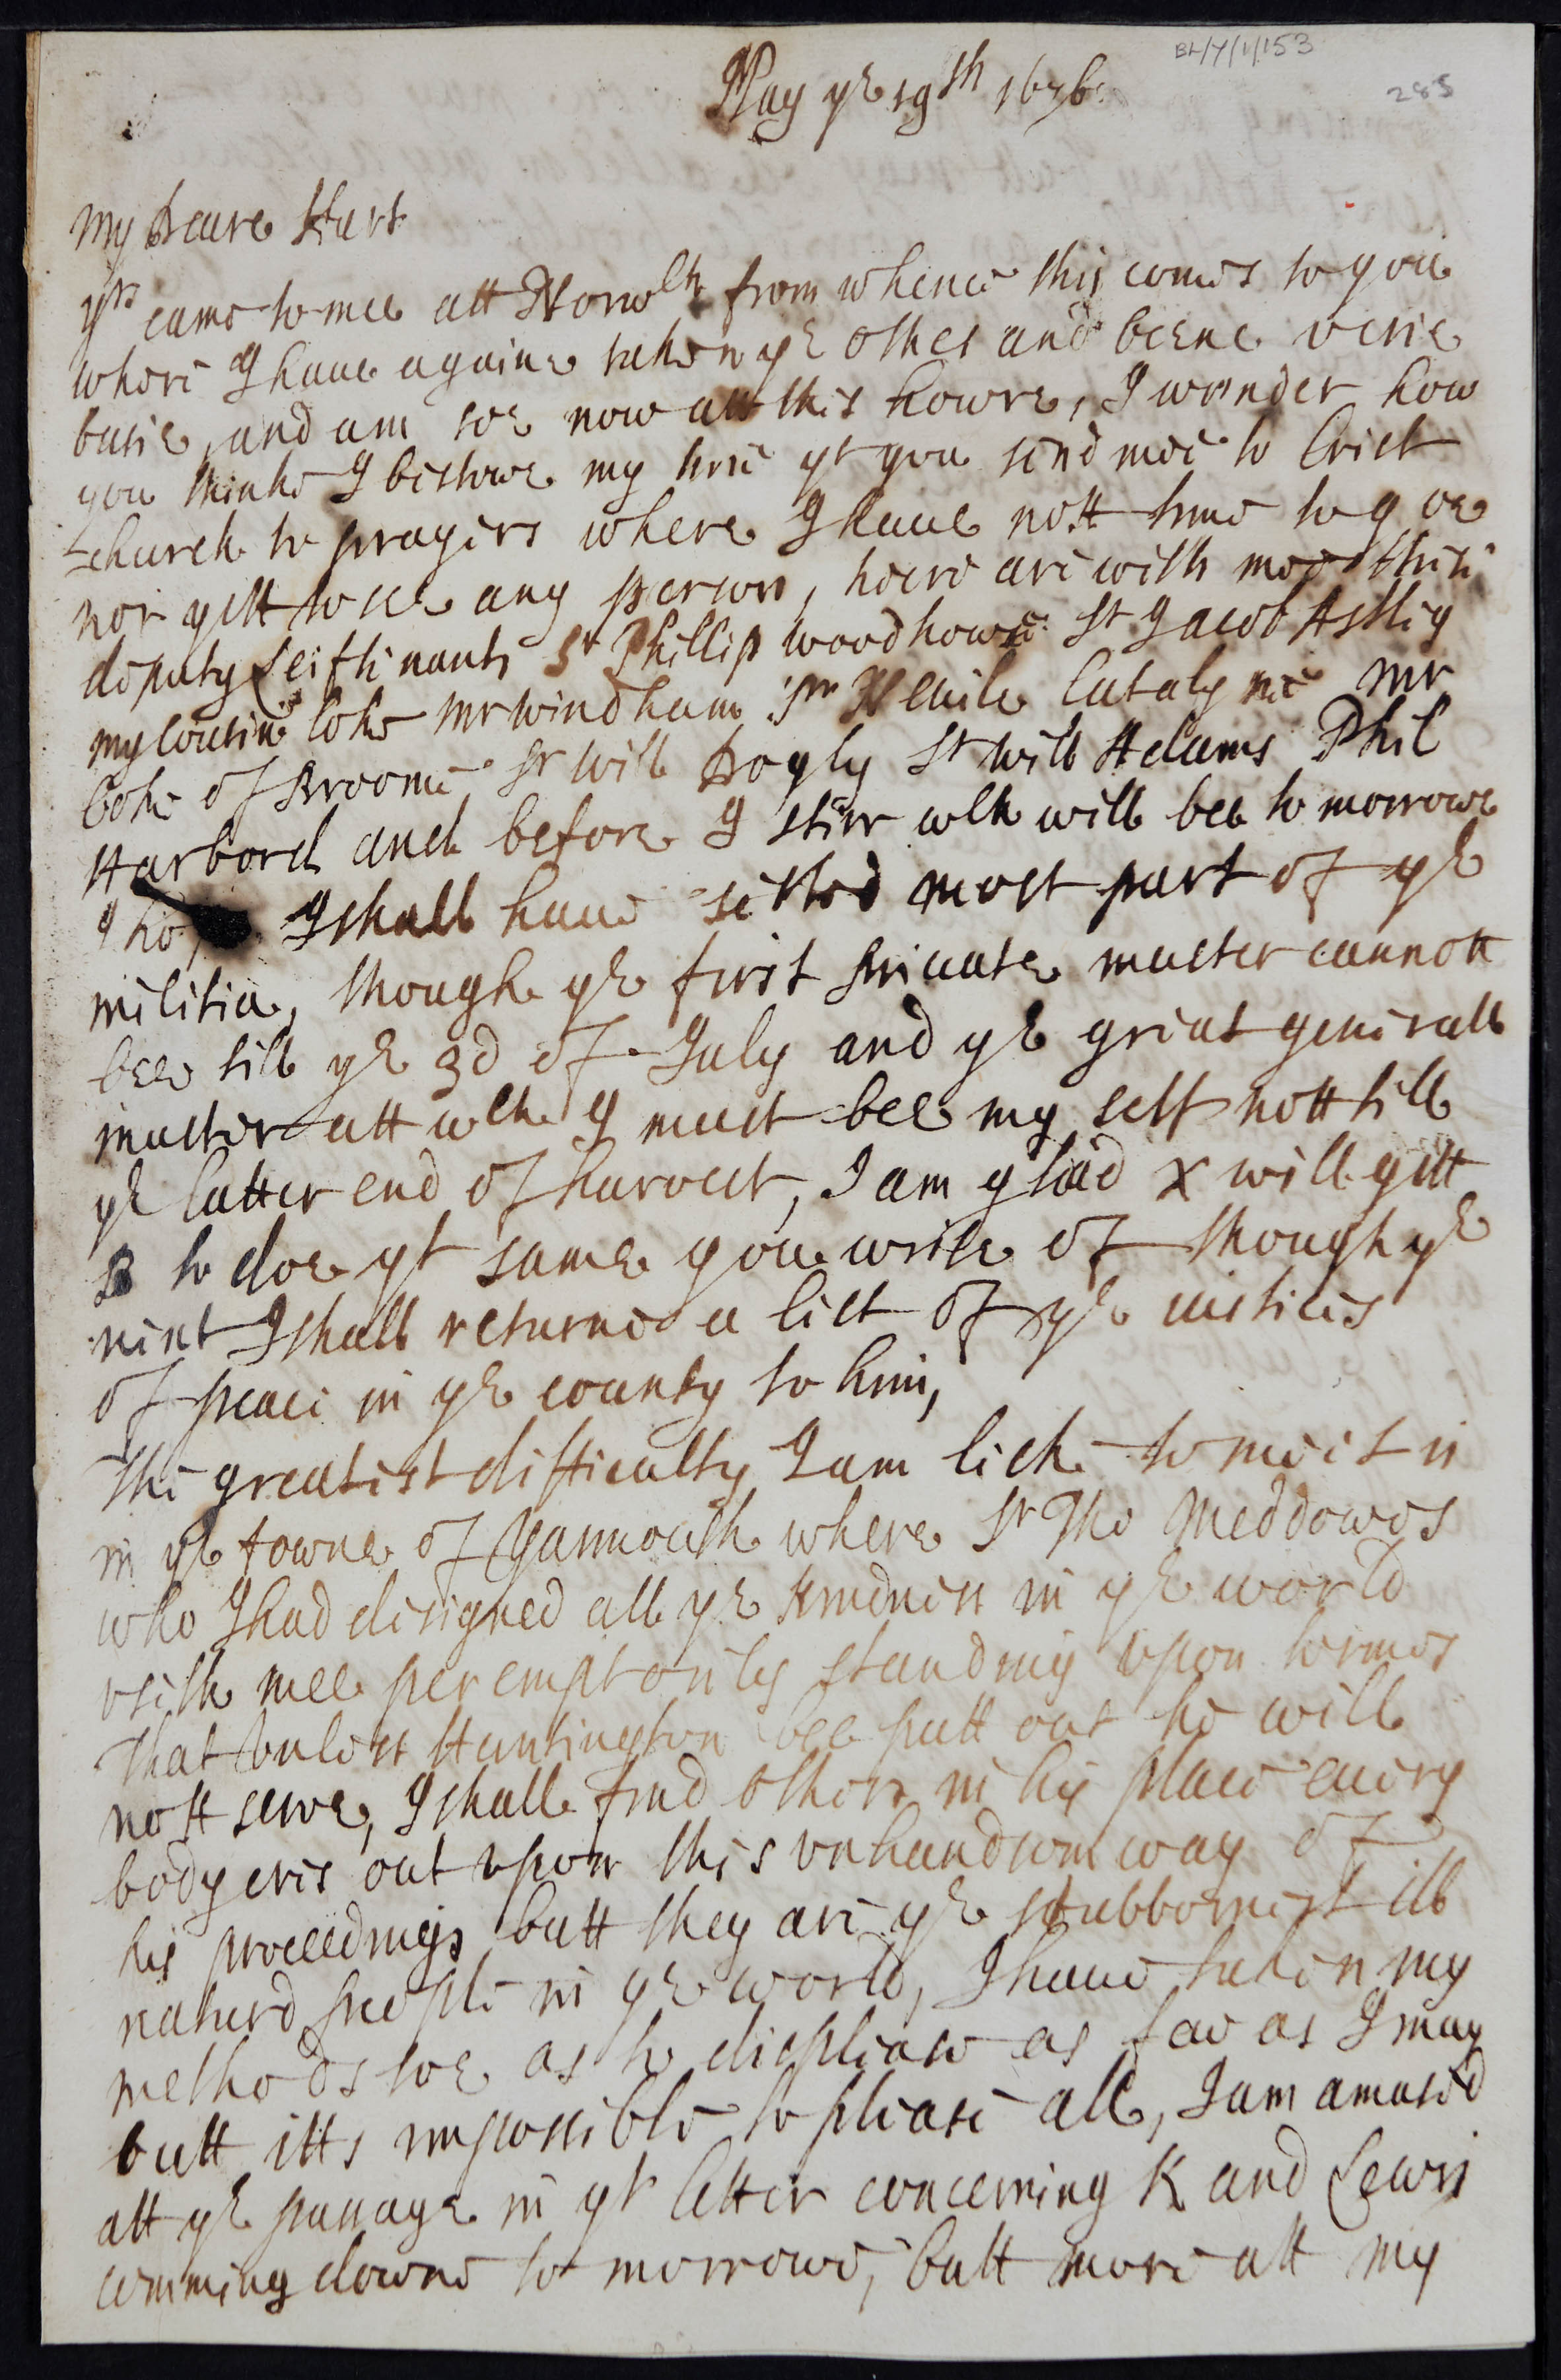 BL/Y/1/153
285
May ye 19th 1676
My Deare Hart
yrs came to mee att Norwch from whence this comes to you
where I have againe taken ye other and beene verie
busie, and am soe now att this howre, I wonder how
you thinke I bestowe my time yt you send mee to Crist
church to prayers where I have nott time to goe
nor yett to see any person, heere are with mee these
deputy Leiftinants Sr Phillip woodhowse Sr Jacob Astley
my Cousin Coke mr windham Sr Nevile Catalyne mr
Coke of Broome Sr Will Doyly Sr Will Adams Phil
Harbord and before I stirr wch will bee to morrowe
I hope I shall have setled most part of ye
militia, though ye first private muster cannott
bee till ye 3d of July and ye great generall
muster att wch I must bee my self nott till
ye latter end of harvest, I am glad x will gett
B to doe yt same you write of though ye
next I shall returne a list of ye iustices
of peace in ye county to him,
The greatest difficulty I am like to meet is
in ye towne of Yarmouth where Sr Tho Meddowes
who I had designed all ye kindness in ye world
useth mee peremptorily standing upon termes
that unless Huntington bee putt out he will
nott serve, I shall find others in his place every
body cries out upon this unhandsom way of
his proceedings butt they are ye stubbornest ill
naturd people in ye world, I have taken my
methods soe as to displease as few as I may
butt itts impossible to please all, I am amased
att ye passage in yr letter concerning K and Lewis
comming downe to morrowe, butt more att my